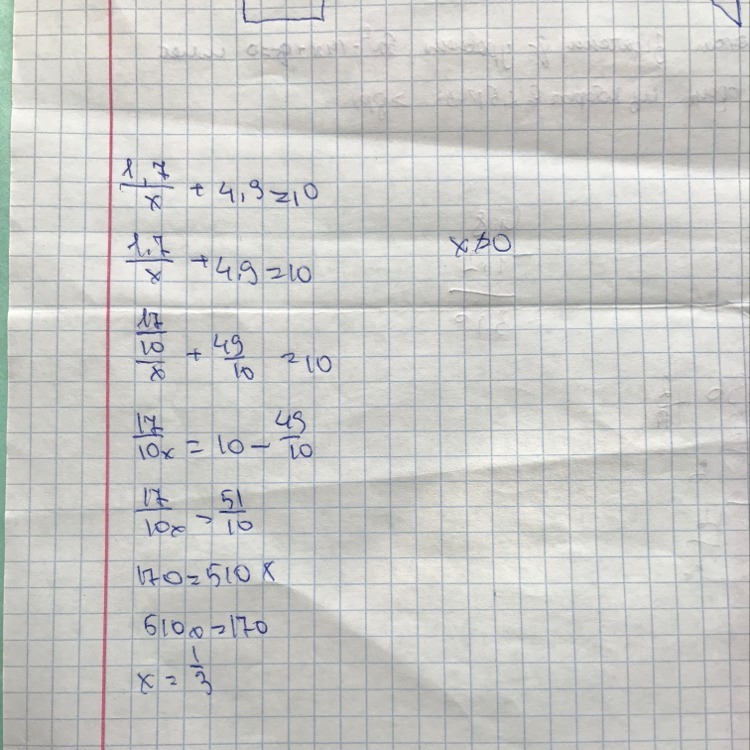 1,7/x + 4,9 = 10
1,7/x + 4,9 = 10
x ≠ 0
17/10/x + 49/10 = 10
17/10x = 10 - 49/10
17/10x = 51/10
170 = 510x
510x = 170
x = 1/3